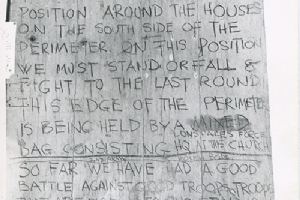 POSITION AROUND THE HOUSES
ON THE SOUTH SIDE OF THE
PERIMETER ON THIS POSITION
WE MUST STAND OR FALL &
FIGHT TO THE LAST ROUND
THIS EDGE OF THE PERIMETER
IS BEING HELD BY A MIXED
LONSDALES FORCE
BAG CONSISTING HQ AT THE CHURCH
SO FAR WE HAVE HAD A GOOD
BATTLE AGAINST GOOD TROOPS TROOPS